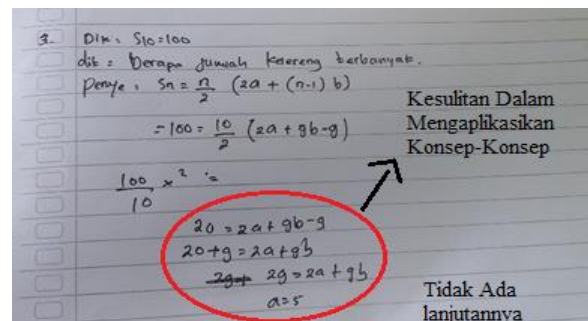 3. Dik : S10 = 100
dit : berapa jumlah kelereng terbanyak.
Penye : Sn = n/2 (2a + (n-1) b)
= 100 = 10/2 (2a + 9b-9)
100/10 x 2 =
20 = 2a + 9b-9
20+9 = 2a + 9b
29 = 2a + 9b
a = 5
Kesulitan Dalam
Mengaplikasikan
Konsep-Konsep
Tidak Ada
lanjutannya